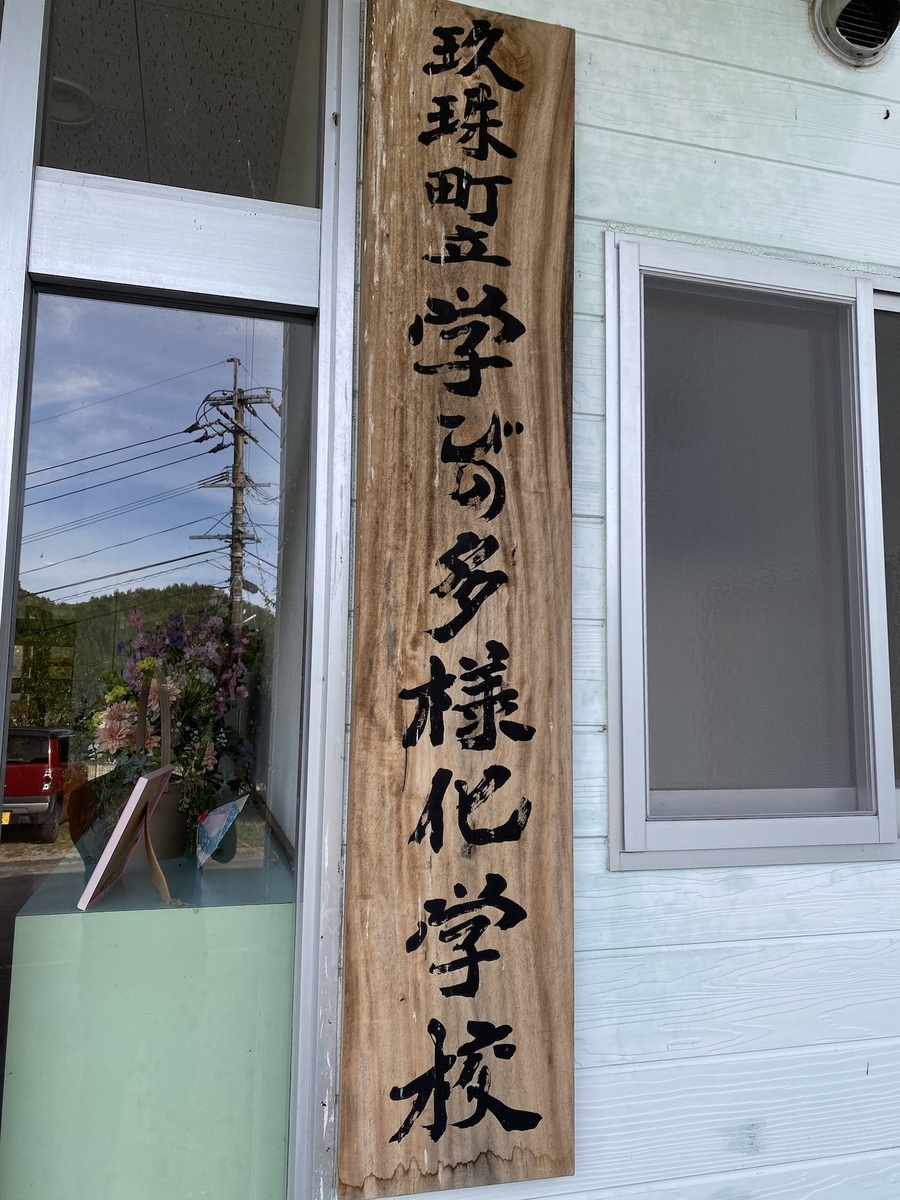 玖珠町立学びの多様化学校